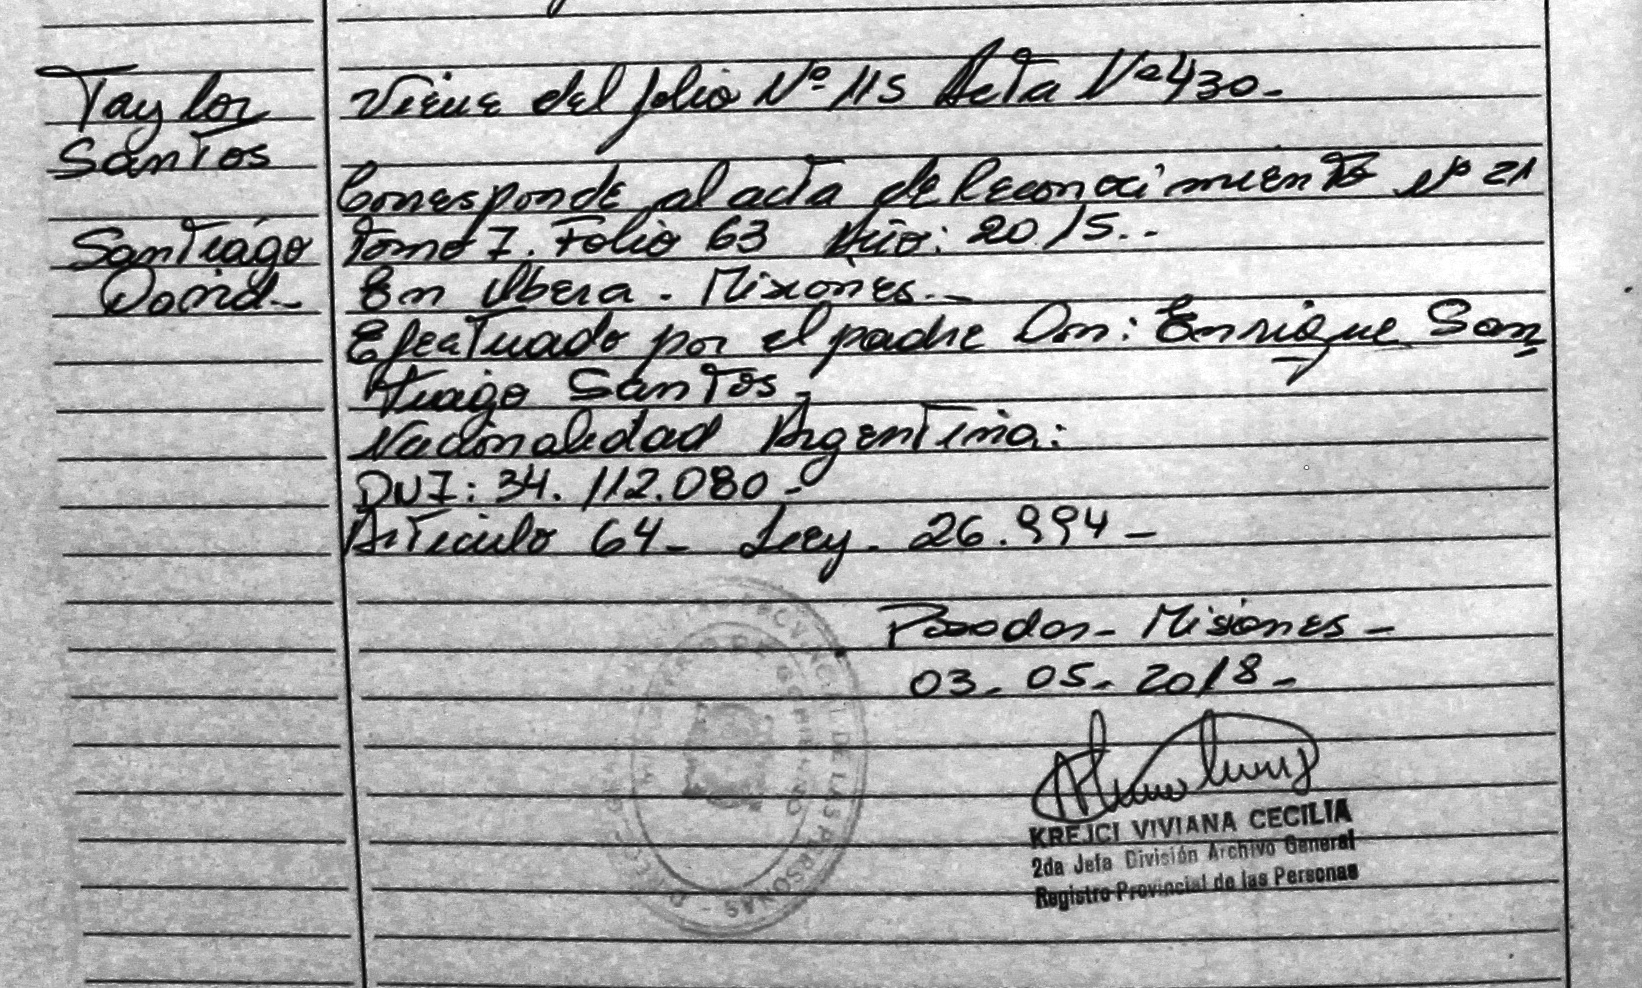 Taylor
Santos
Santiago
David_
Viene del folio Nº 115 Acta Nº 430_
Corresponde al acta de Reconocimiento nº 21
Tomo I. Folio 63 Año: 2015._
En Ubera. Misiones._
Efectuado por el padre Don: Enrique San
tiago Santos_
Nacionalidad Argentina:
DNI: 34.112.080_
Articulo 64_ Ley. 26.994_
Posadas_ Misiones_
03_05_2018_
KREJCI VIVIANA CECILIA
2da Jefa División Archivo General
Registro Provincial de las Personas
DE LAS PERSONAS